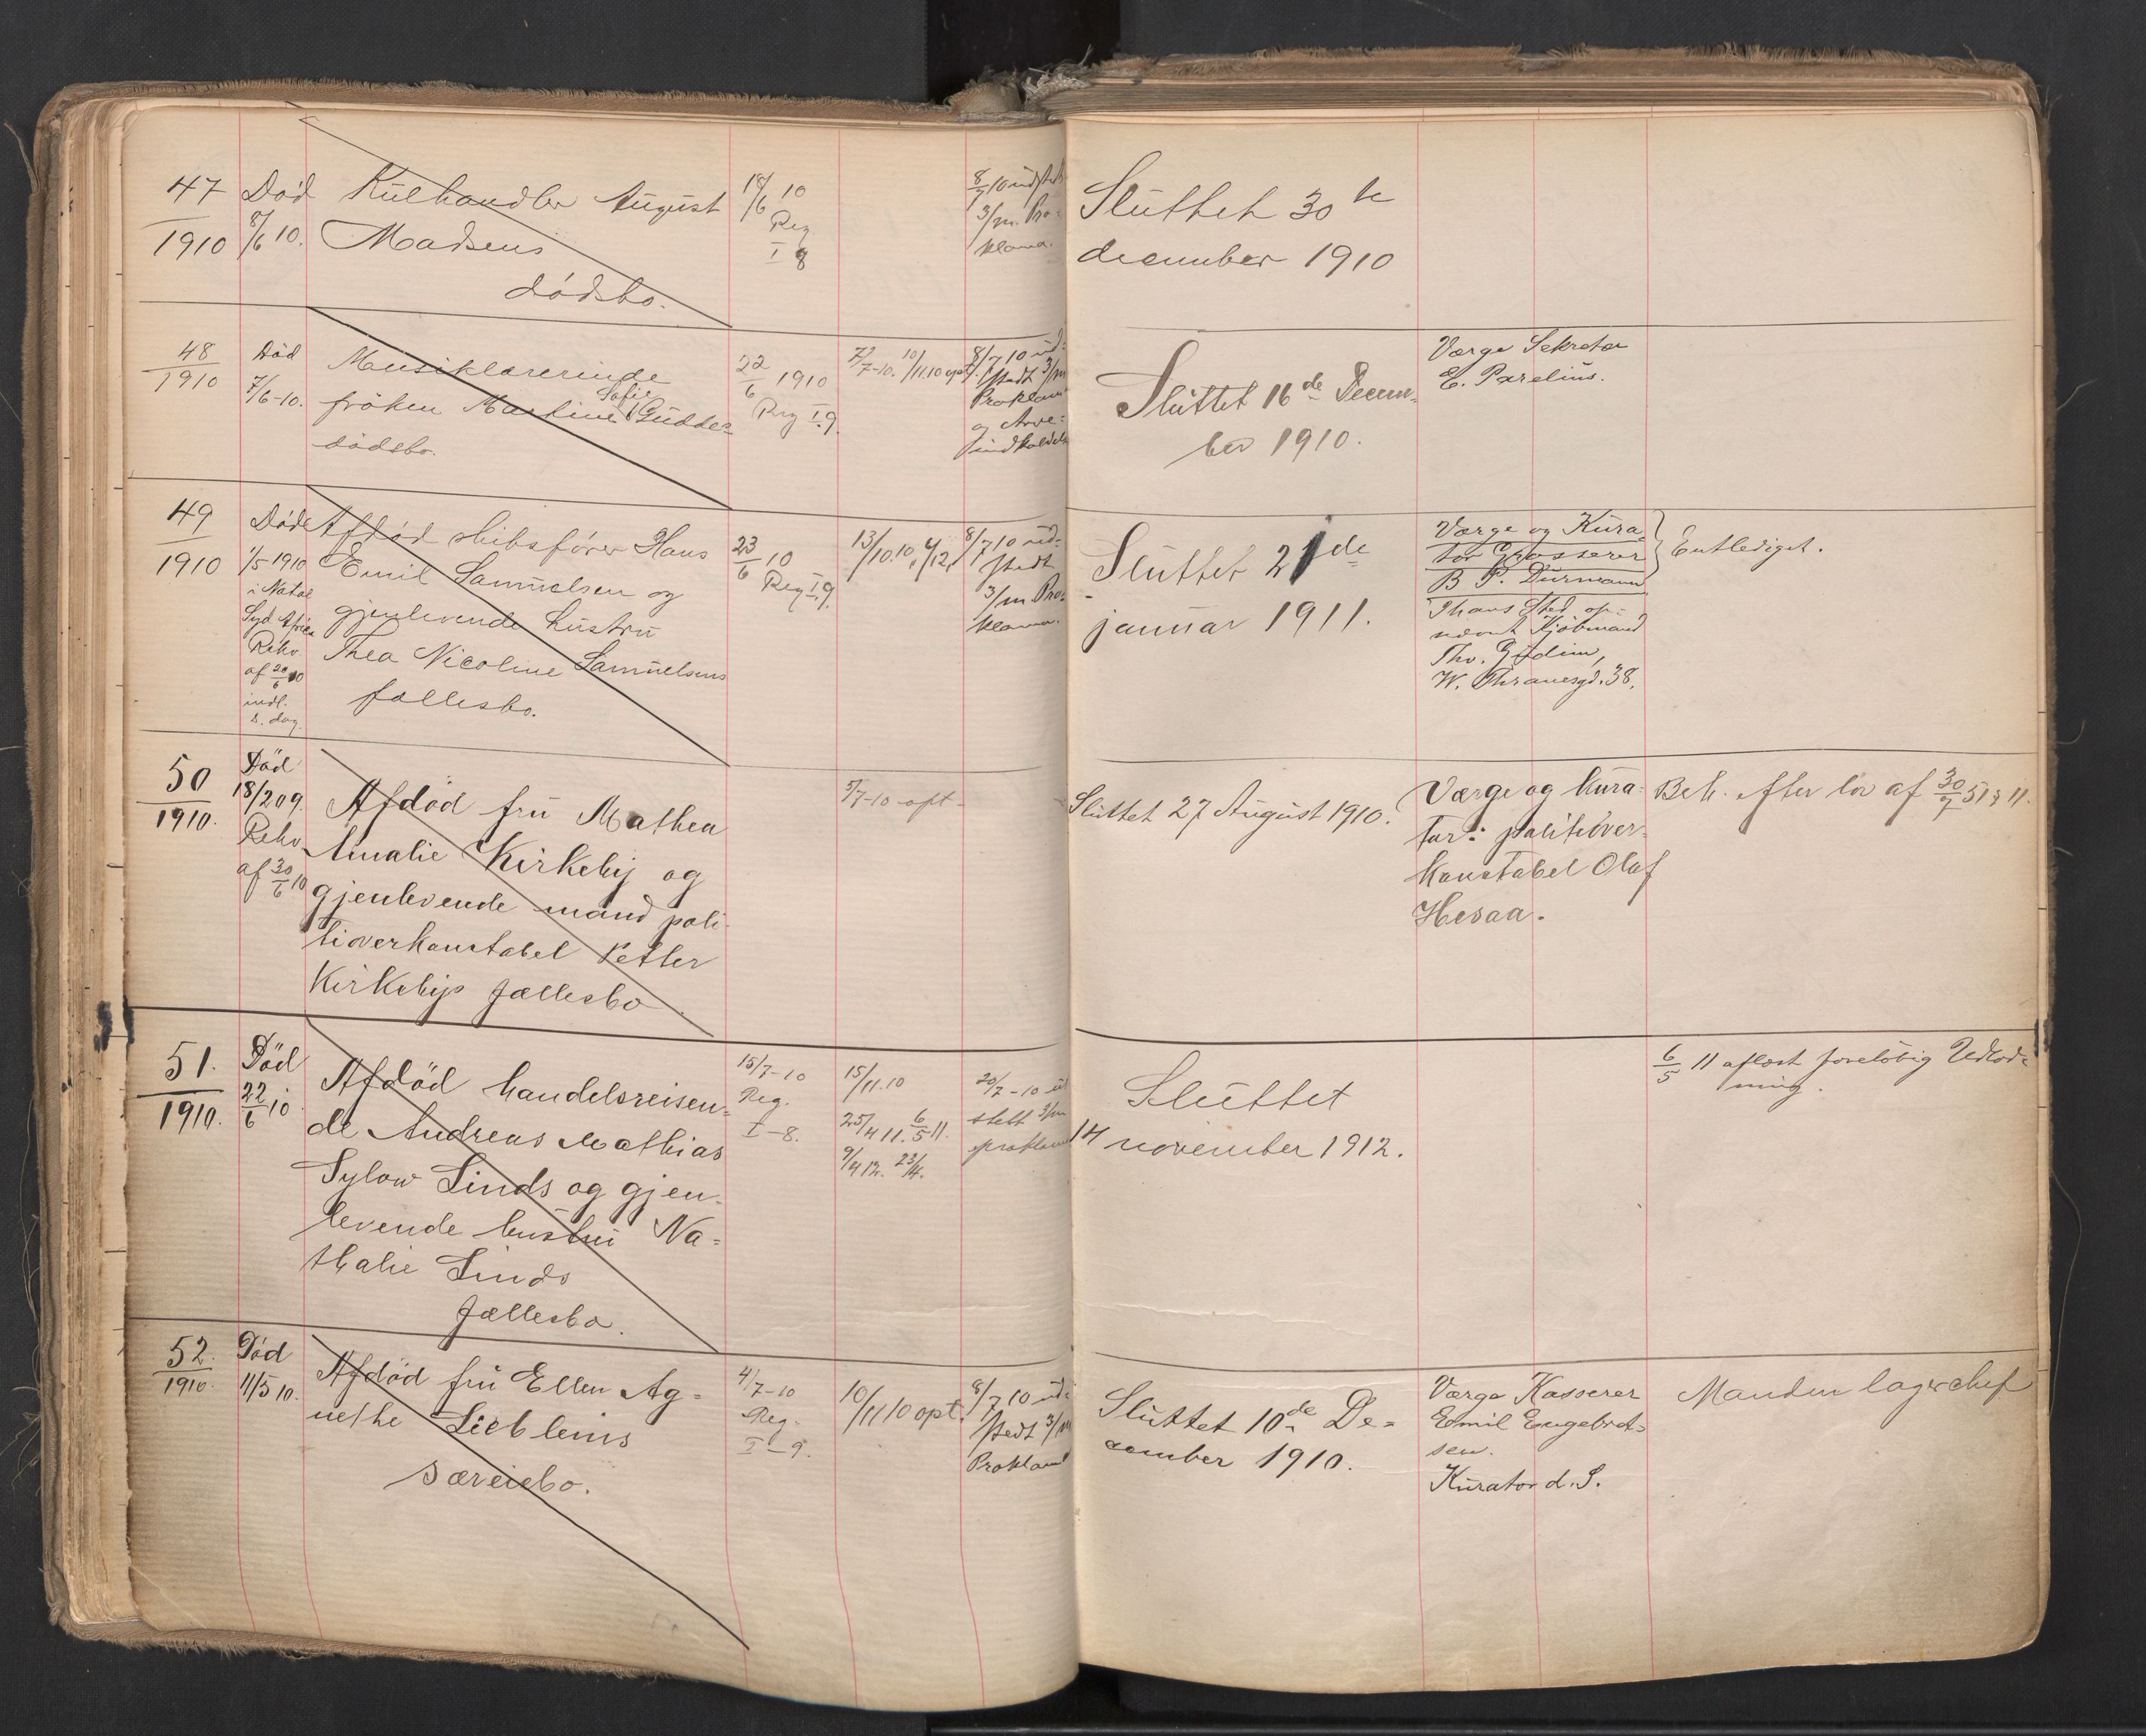 47
1910
Död
8/6 10.
Kulhandler August
Madsens
dödsbo.
18/6 10
Reg
I 8
8/7 10 udstedt
3/m. Pro-
klama.
Sluttet 30te
december 1910
48
1910
Död
7/6-10.
Musiklærerinde
Sofie
fröken Martine Gudde
dödsbo.
22/6 1910
Reg I.9.
10/11.10 opt.
8/7 10 ud-
stedt 3/m
Proklam
og Arve-
indkaldelse
Sluttet 16de Decem-
ber 1910.
Værge Sekretær
E. Parelius.
49
1910
Döde
1/5 1910
i Natal
Syd Afrika
Rekv
af 20/6 10
indl.
s. dag.
Afdöd skibsförer Hans
Emil Samuelsen og
gjenlevende hustru
Thea Nicoline Samuelsens
fællesbo.
23/6 10
Reg I.9.
13/10.10, 4/12,
8/7 10 ud-
stedt
3/m. Pro-
klama.
Sluttet 21de
januar 1911.
Værge og Kura-
tor Grosserer
B. P. Durmann
Entlediget.
I hans Sted op-
nævnt Kjöbmand
Thv. Gudim,
W. Thranesgd. 38.
50
1910.
Död
18/2 09.
Rekv.
af 30/6 10
Afdöd fru Mathea
Amalie Kirkeby og
gjenlevende mand poli-
tioverkonstabel Petter
Kirkebys fællesbo
5/7-10 opt.
Sluttet 27 August 1910.
Værge og Kura-
tor: politiover-
konstabel Olaf
Hesaa.
Beh. efter lov af 30/7 51 § 11.
51.
1910.
Död
22/6 10.
Afdöd handelsreisen-
de Andreas Mathias
Sylow Linds og gjen-
levende hustru Na-
thalie Linds
fællesbo.
15/7-10
Reg.
I-8.
15/11.10
25/4 11. 6/5 11.
9/4 12. 23/4.
20/7-10 ud
stett 3/m
proklama
Sluttet
14 november 1912.
6/5 11 aflæst foreløbig Udlod-
ning.
52.
1910.
Död
11/5 10.
Afdöd fru Ellen Ag-
nethe Liebleins
særeiebo.
4/7-10
Reg.
I-9.
10/11 10 opt.
8/7 10 ud-
stedt 3/m
Proklama
Sluttet 10de De-
cember 1910.
Værge Kasserer
Emil Engebret-
sen.
Kurator d. S.
Manden lagerchef